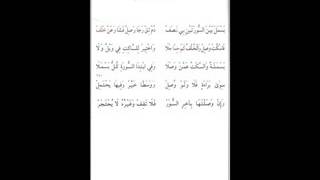 بَسْمَلَ بَيْنَ السُّورَتَيْنِ بِي نَصَفْ دُمْ ثِقْ رَجَا وَصِلْ فَشَا وَعَنْ خَلَفْ
فَاسْكُتْ فَصِلْ وَالْخُلْفُ كَمْ حِمًا جَلَا وَاخْتِيرَ لِلسَّاكِتِ فِي وَيْلٌ وَلَا
بَسْمَلَةٌ وَالسَّكْتُ عَمَّنْ وَصَلَا وَفِي ابْتِدَا السُّورَةِ كُلٌّ بَسْمَلَا
سِوَى بَرَاءَةٍ فَلَا وَلَوْ وُصِلْ وَوَسَطًا خَيِّرْ وَفِيهَا يَحْتَمِلْ
وَإِنْ وَصَلْتَهَا بِآخِرِ السُّوَرْ فَلَا تَقِفْ وَغَيْرُهُ لَا يُحْتَجَرْ